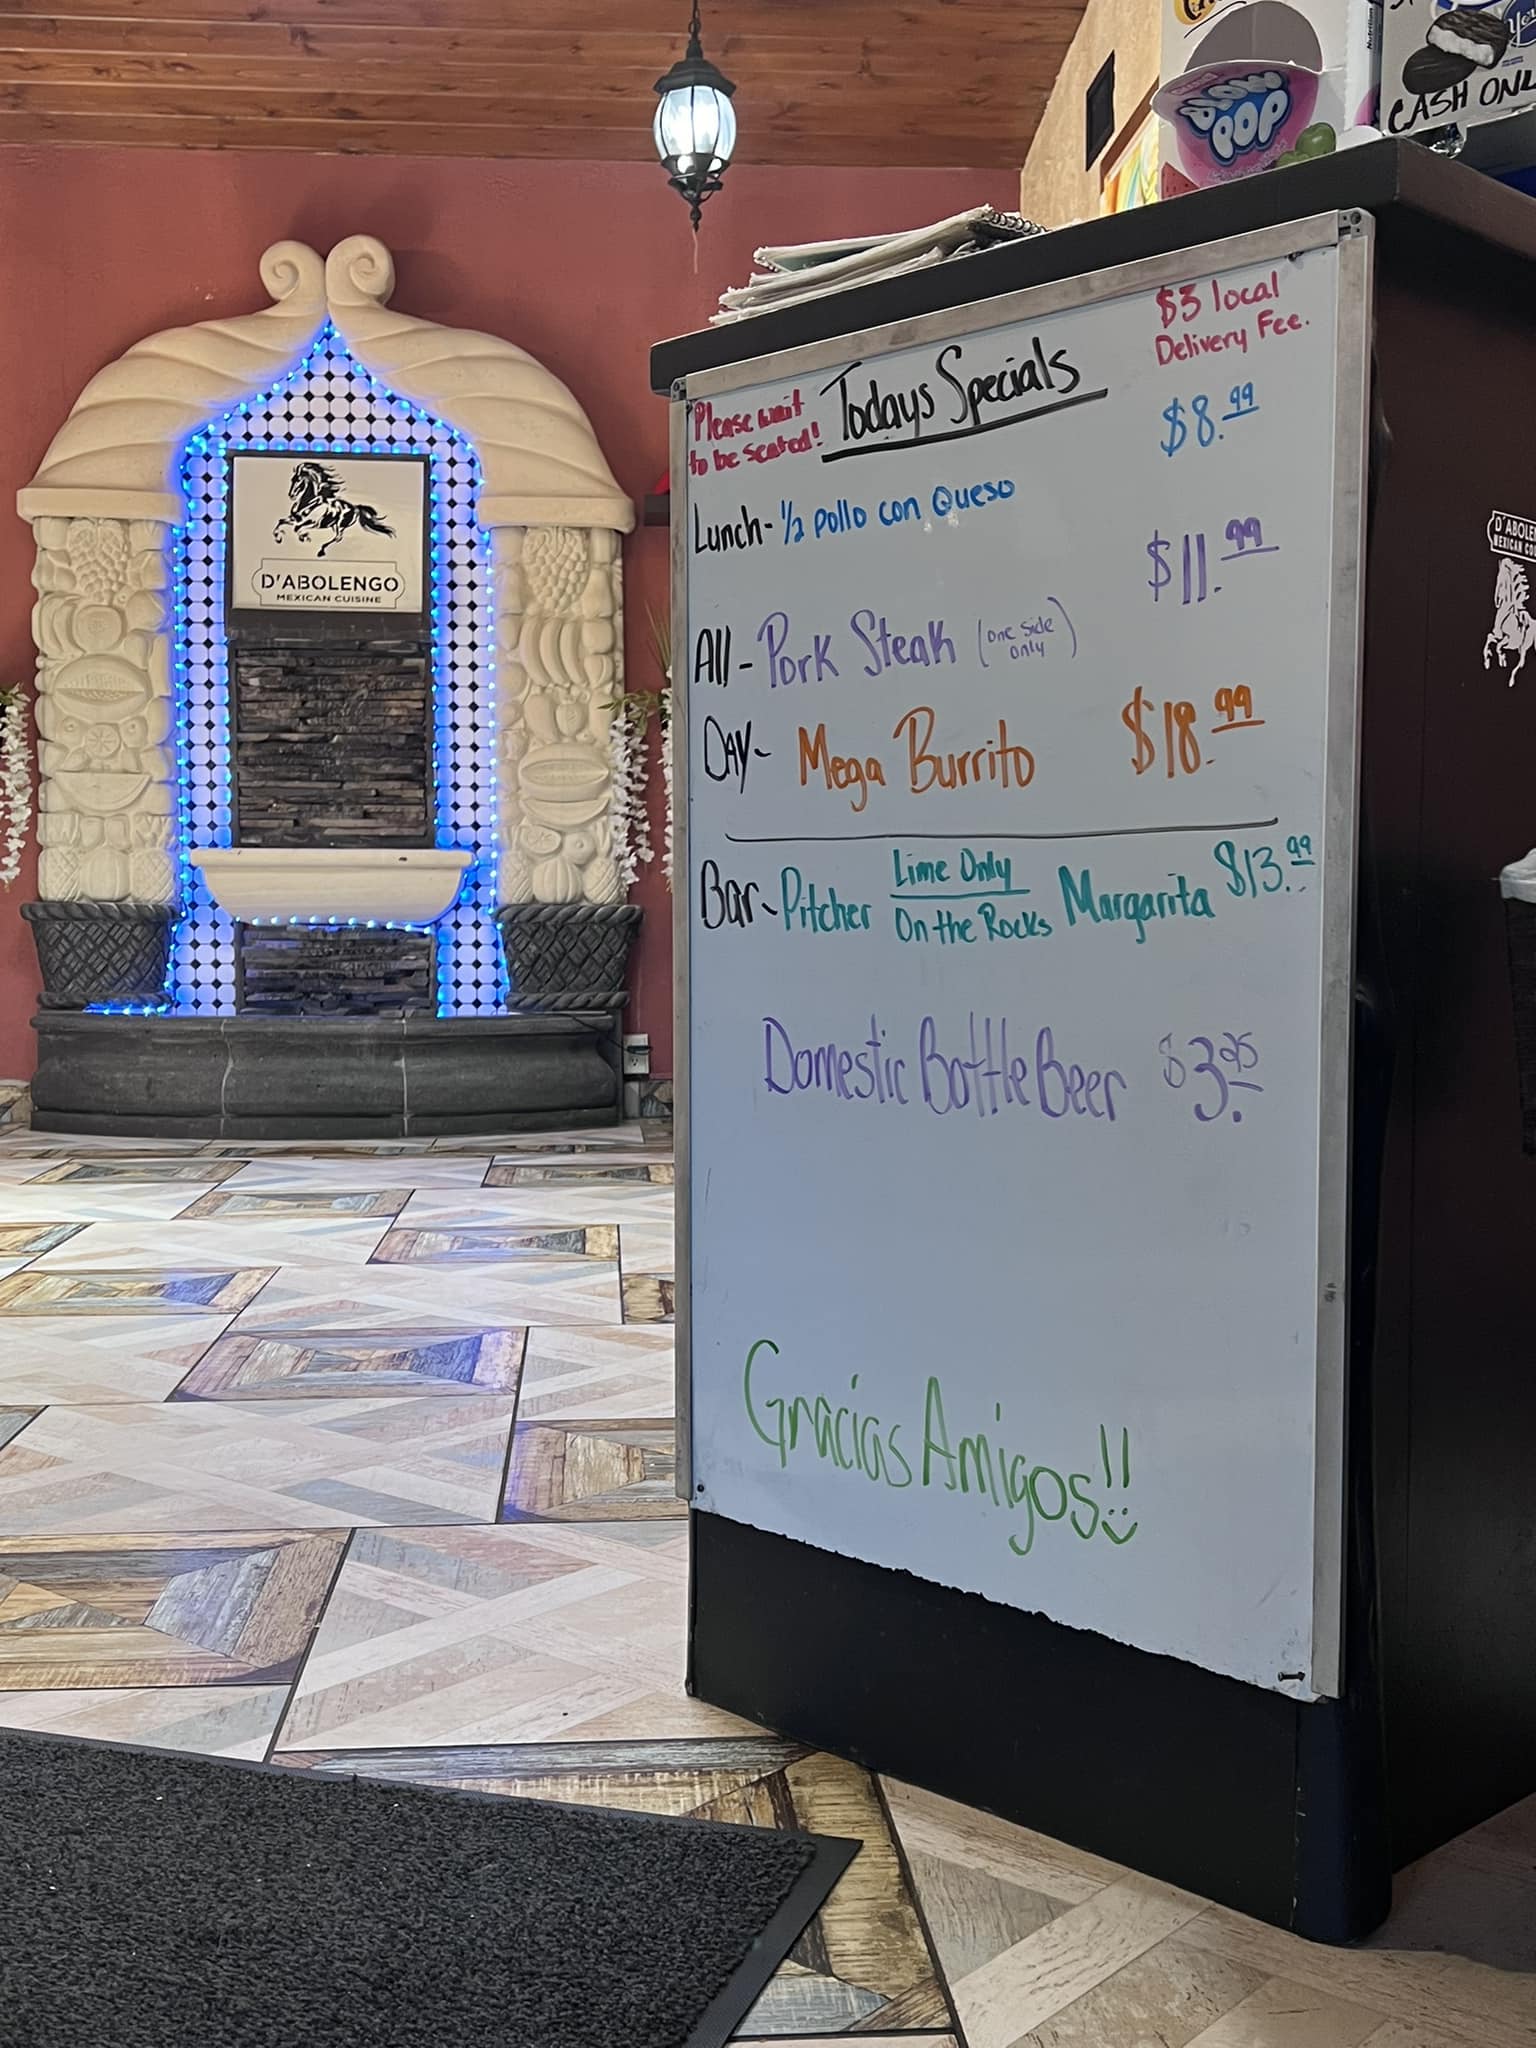 BLOW
POP
CASH ONL
$3 local
Delivery Fee.
Please wait
to be seated!
Todays Specials
$8.99
Lunch- 1/2 pollo con Queso
$11.99
All- Pork Steak (one side only)
Day- Mega Burrito $18.99
Bar- Pitcher Lime Only On the Rocks Margarita $13.99
Domestic Bottle Beer $3.25
Gracias Amigos!!
D'ABOLENGO
MEXICAN CUISINE
D'ABOLEN
MEXICAN CUI